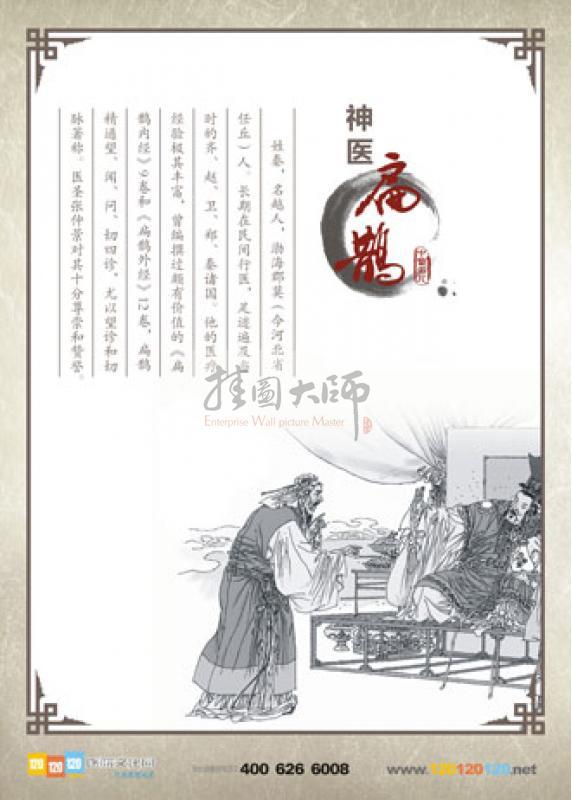 神医
扁鹊
姓秦，名越人，渤海郡莫（今河北省
任丘）人。长期在民间行医，足迹遍及当
时的齐、赵、卫、郑、秦诸国。他的医疗
经验极其丰富，曾编撰过颇有价值的《扁
鹊内经》9卷和《扁鹊外经》12卷，扁鹊
精通望、闻、问、切四诊，尤以望诊和切
脉著称。医圣张仲景对其十分尊崇和赞誉。
挂图大师
Enterprise Wall picture Master
120 120 120
400 626 6008
www.120120120.net